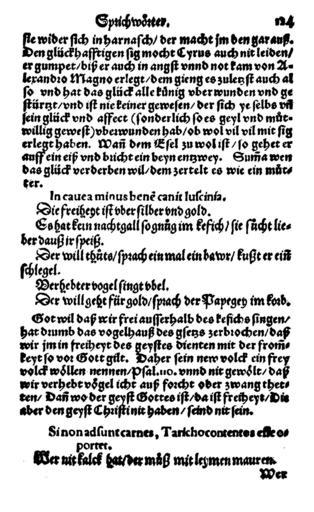 Sprichwörter. 124
sie wider sich in harnasch/ der macht jm den gar auß.
Den glückhafftigen sig mocht Cyrus auch nit leiden/
er gumpet/ biß er auch in angst vnnd not kam von A-
lexandro Magno erlegt/ dem gieng es zuletzt auch al
so vnd hat das glück alle künig vberwunden vnd ge
stürtzt/ vnd ist nie keiner gewesen/ der sich ye selbs vñ
sein glück vnd affect (sonderlich so es geyl vnd můt-
willig gewest) vberwunden hab/ ob wol vil mit sig
erlegt haben. Wañ dem Esel zu wol ist/ so gehet er
auff ein eiß vnd bricht ein beyn entzwey. Summa wen
das glück verderben wil/ dem zertelt es wie ein můt-
ter.
In cauea minus benè canit luscinia.
Die freiheyt ist vber silber vnd gold.
Es hat kein nachtgall so gnůg im kefich/ sie sůcht lie-
ber dauß ir speiß.
Der will thůts/ sprach ein mal ein bawr/ kußt er ein
schlegel.
Verhebter vogel singt vbel.
Der will geht für gold/ sprach der Papegey im korb.
Got wil daß wir frei ausserhalb des kefichs singen/
hat drumb das vogelhauß des gsetzs zerbrochen/ daß
wir jm in freiheit des geystes dienten mit der from-
keyt so vor Gott gilt. Daher sein new volck ein frey
volck wöllen nennen/ Psal. 110. vnnd nit gewölt/ daß
wir verhebt vögel icht auß forcht ober zwang thet-
ten/ Dañ wo der geyst Gottes ist/ da ist freiheyt/ Die
aber den geyst Christi nit haben/ seind nit sein.
Si non adsunt carnes, Tarichocontentos esse o-
portet.
Wer nit kalck hat/ der můß mit leymen mauren.
Wer